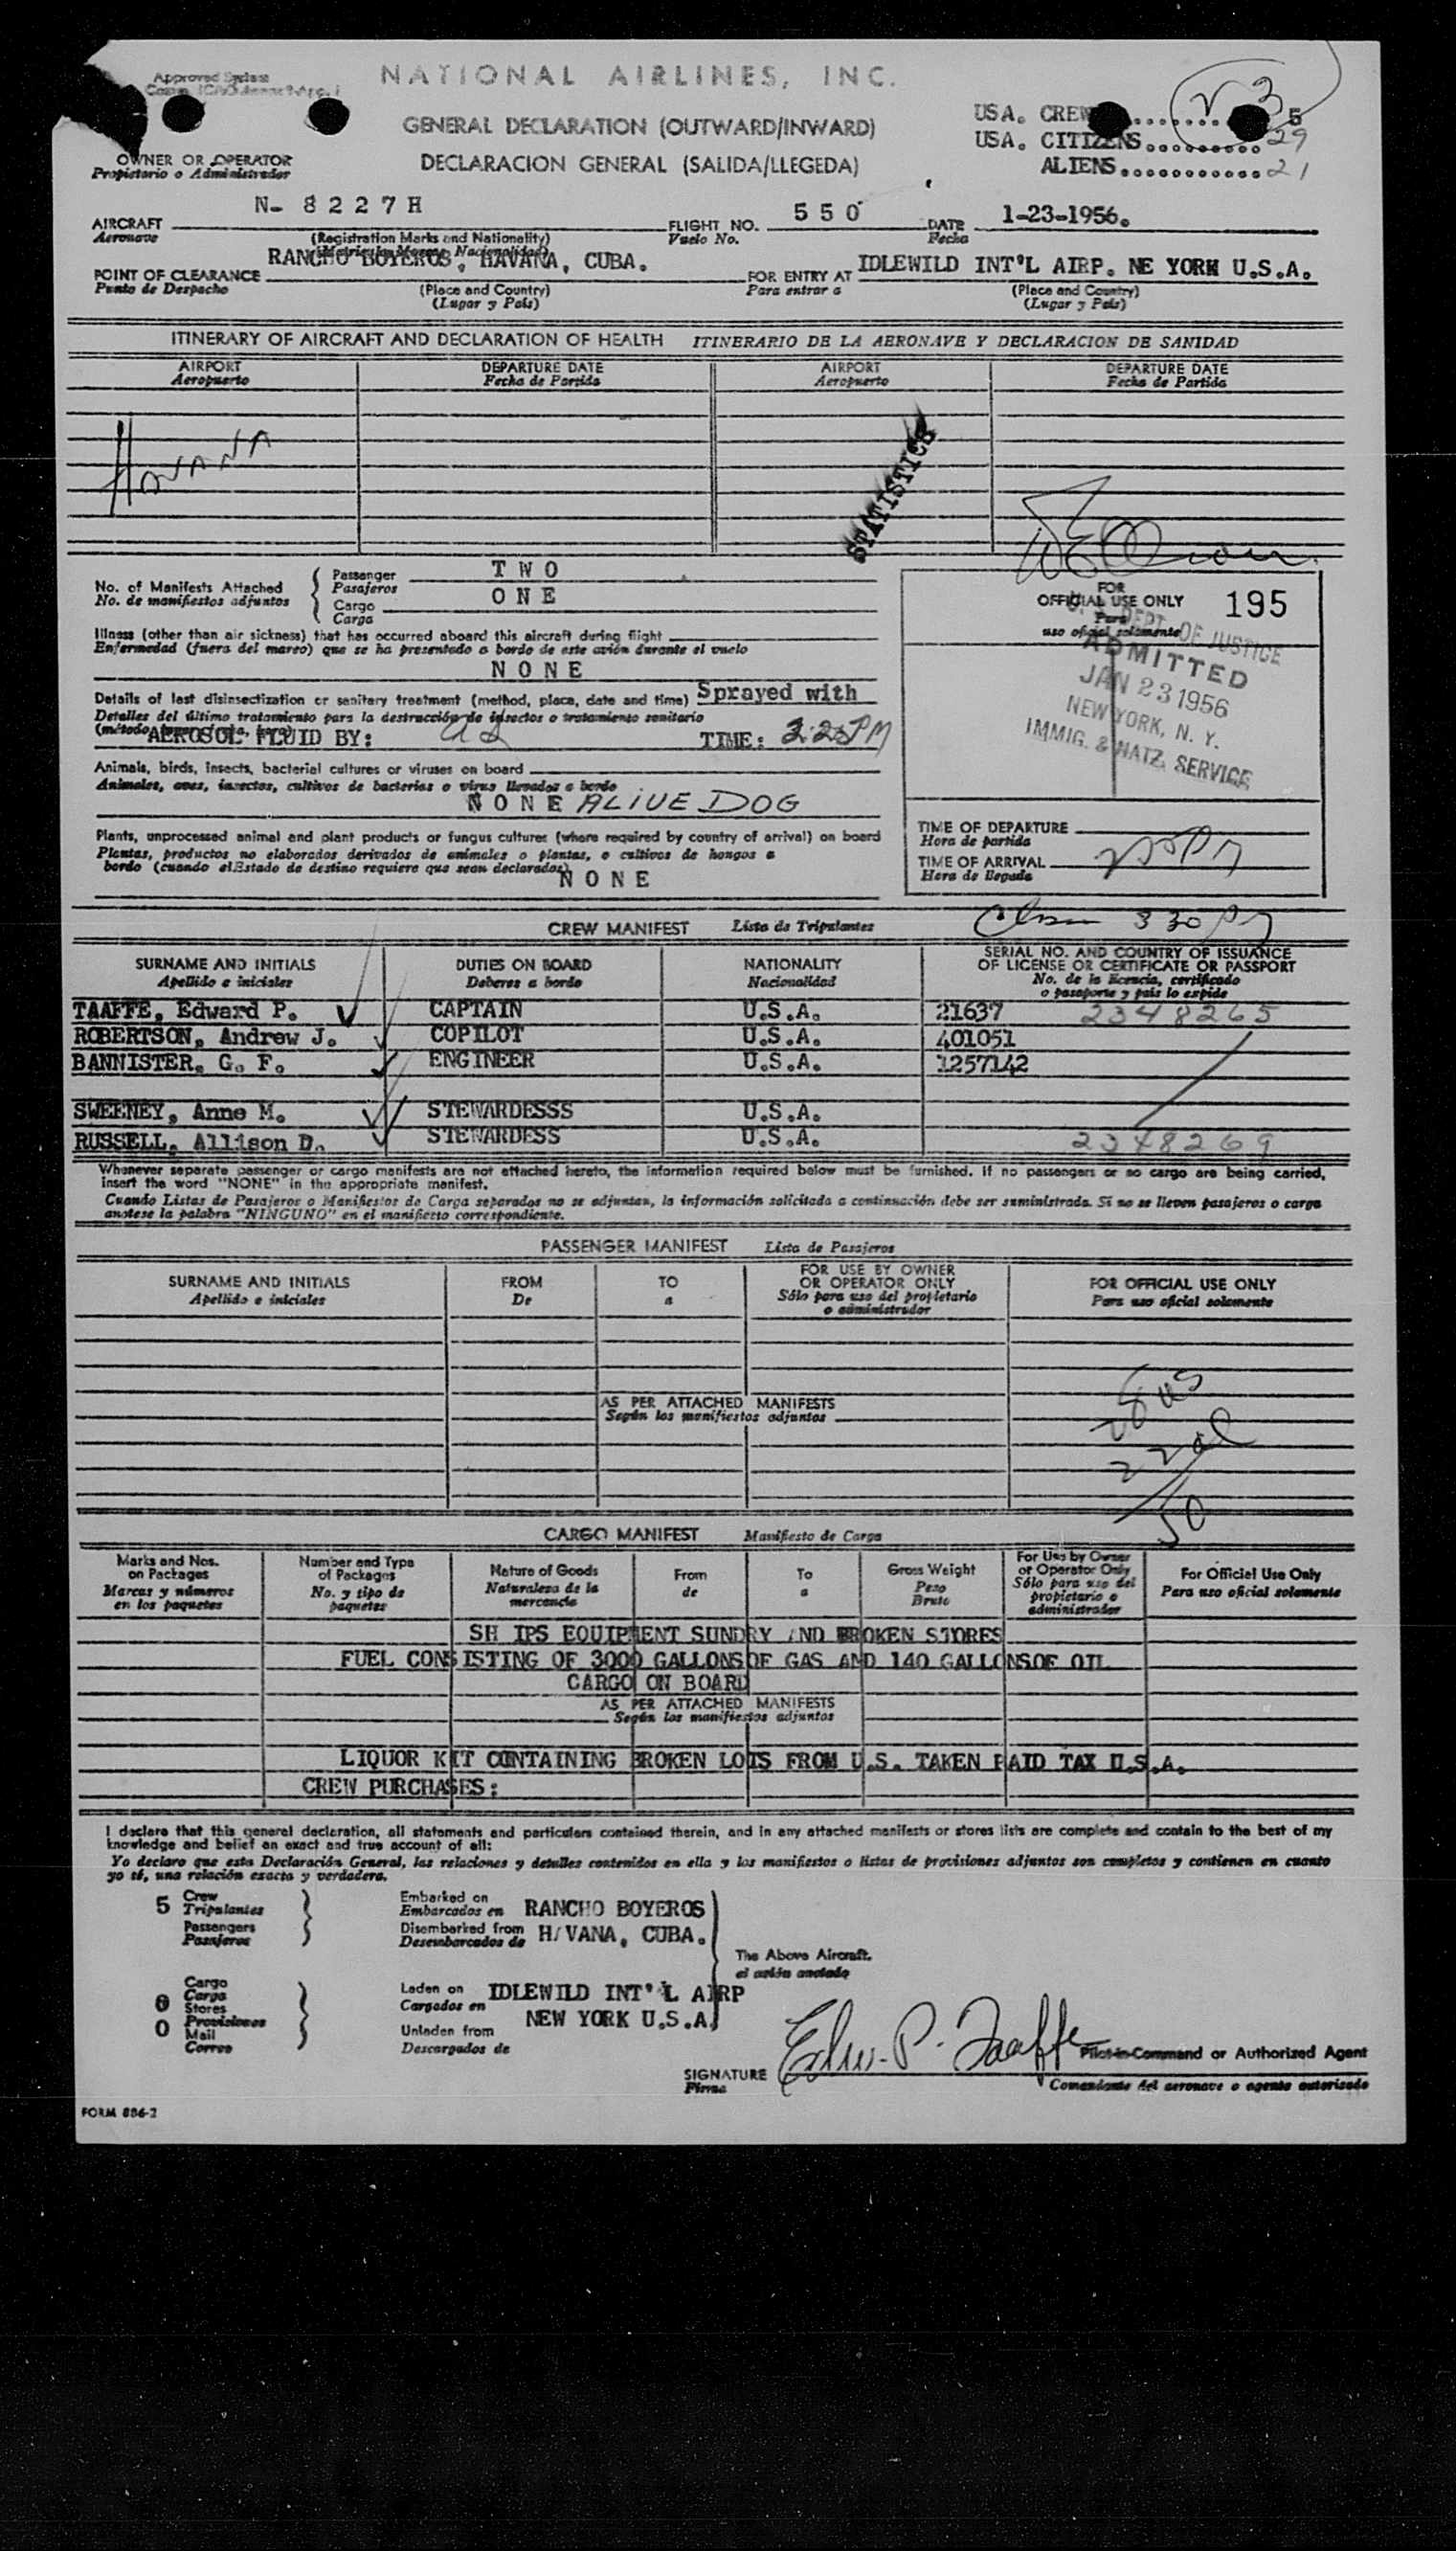 Approved System
NATIONAL AIRLINES, INC.
GENERAL DECLARATION (OUTWARD/INWARD)
DECLARACION GENERAL (SALIDA/LLEGEDA)
USA. CREW.......... 5
USA. CITIZENS.......... 29
ALIENS............ 21
OWNER OR OPERATOR
Propietario o Administrador
AIRCRAFT N- 8 2 2 7 H FLIGHT NO. 5 5 0 DATE 1-23-1956.
Aeronave (Registration Marks and Nationality) Vuelo No. Fecha
POINT OF CLEARANCE RANCHO BOYEROS, HAVANA, CUBA. FOR ENTRY AT IDLEWILD INT'L AIRP. NE YORK U.S.A.
Punto de Despacho (Place and Country) Para entrar a (Place and Country)
(Lugar y País) (Lugar y País)
ITINERARY OF AIRCRAFT AND DECLARATION OF HEALTH ITINERARIO DE LA AERONAVE Y DECLARACION DE SANIDAD
AIRPORT DEPARTURE DATE AIRPORT DEPARTURE DATE
Aeropuerto Fecha de Partida Aeropuerto Fecha de Partida
HAVANA
STATISTICS
No. of Manifests Attached Passenger T W O
No. de manifiestos adjuntos Pasajeros
Cargo O N E
Carga
Illness (other than air sickness) that has occurred aboard this aircraft during flight
Enfermedad (fuera del mareo) que se ha presentado a bordo de este avión durante el vuelo
N O N E
Details of last disinsectization or sanitary treatment (method, place, date and time) Sprayed with
Detalles del último tratamiento para la destrucción de insectos o tratamiento sanitario
AEROSOL FLUID BY: TIME: 2:25PM
Animals, birds, insects, bacterial cultures or viruses on board
Animales, aves, insectos, cultivos de bacterias o virus llevados a bordo
N O N E ALIVE DOG
Plants, unprocessed animal and plant products or fungus cultures (where required by country of arrival) on board
Plantas, productos no elaborados derivados de animales o plantas, o cultivos de hongos a
bordo (cuando el Estado de destino requiere que sean declarados)
N O N E
FOR
OFFICIAL USE ONLY 195
Para
uso oficial solamente
DEPT. OF JUSTICE
ADMITTED
JAN 23 1956
NEW YORK, N. Y.
IMMIG. & NATZ. SERVICE
TIME OF DEPARTURE
Hora de partida
TIME OF ARRIVAL 255PM
Hora de llegada
330 PM
CREW MANIFEST Lista de Tripulantes
SURNAME AND INITIALS DUTIES ON BOARD NATIONALITY SERIAL NO. AND COUNTRY OF ISSUANCE
OF LICENSE OR CERTIFICATE OR PASSPORT
Apellido e iniciales Deberes a bordo Nacionalidad No. de la licencia, certificado
o pasaporte y país lo expide
TAAFFE, Edward P. CAPTAIN U.S.A. 21637 2348265
ROBERTSON, Andrew J. COPILOT U.S.A. 401051
BANNISTER, G. F. ENGINEER U.S.A. 1257142
SWEENEY, Anne M. STEWARDESSS U.S.A.
RUSSELL, Allison D. STEWARDESS U.S.A. 2348269
Whenever separate passenger or cargo manifests are not attached hereto, the information required below must be furnished. If no passengers or no cargo are being carried,
insert the word "NONE" in the appropriate manifest.
Cuando Listas de Pasajeros o Manifiestos de Carga separados no se adjuntan, la información solicitada a continuación debe ser suministrada. Si no se lleven pasajeros o carga
anotese la palabra "NINGUNO" en el manifiesto correspondiente.
PASSENGER MANIFEST Lista de Pasajeros
SURNAME AND INITIALS FROM TO FOR USE BY OWNER
OR OPERATOR ONLY FOR OFFICIAL USE ONLY
Apellido e iniciales De a Sólo para uso del propietario
o administrador Para uso oficial solamente
AS PER ATTACHED MANIFESTS
Según los manifiestos adjuntos
28 US
22 al
50
CARGO MANIFEST Manifiesto de Carga
Marks and Nos.
on Packages
Marcas y números
en los paquetes
Number and Type
of Packages
No. y tipo de
paquetes
Nature of Goods
Naturaleza de la
mercancía
From
de
To
a
Gross Weight
Peso
Bruto
For Use by Owner
or Operator Only
Sólo para uso del
propietario o
administrador
For Official Use Only
Para uso oficial solamente
SH IPS EQUIPMENT SUNDRY AND BROKEN STORES
FUEL CONSISTING OF 3000 GALLONS OF GAS AND 140 GALLONSOF OIL
CARGO ON BOARD
AS PER ATTACHED MANIFESTS
Según los manifiestos adjuntos
LIQUOR KIT CONTAINING BROKEN LOTS FROM U.S. TAKEN PAID TAX U.S.A.
CREW PURCHASES:
I declare that this general declaration, all statements and particulars contained therein, and in any attached manifests or stores lists are complete and contain to the best of my
knowledge and belief an exact and true account of all:
Yo declaro que esta Declaración General, las relaciones y detalles contenidos en ella y los manifiestos o listas de provisiones adjuntos son completos y contienen en cuanto
yo sé, una relación exacta y verdadera.
5 Crew
Tripulantes
Passengers
Pasajeros
Embarked on
Embarcados en RANCHO BOYEROS
Disembarked from
Desembarcados de HAVANA, CUBA.
The Above Aircraft.
el avión anotado
Cargo
Carga
0 Stores
Provisiones
0 Mail
Correo
Laden on IDLEWILD INT'L AIRP
Cargados en
NEW YORK U.S.A.
Unladen from
Descargados de
SIGNATURE Edw. P. Taaffe Pilot-in-Command or Authorized Agent
Firma Comandante del aeronave o agente autorizado
FORM 886-2